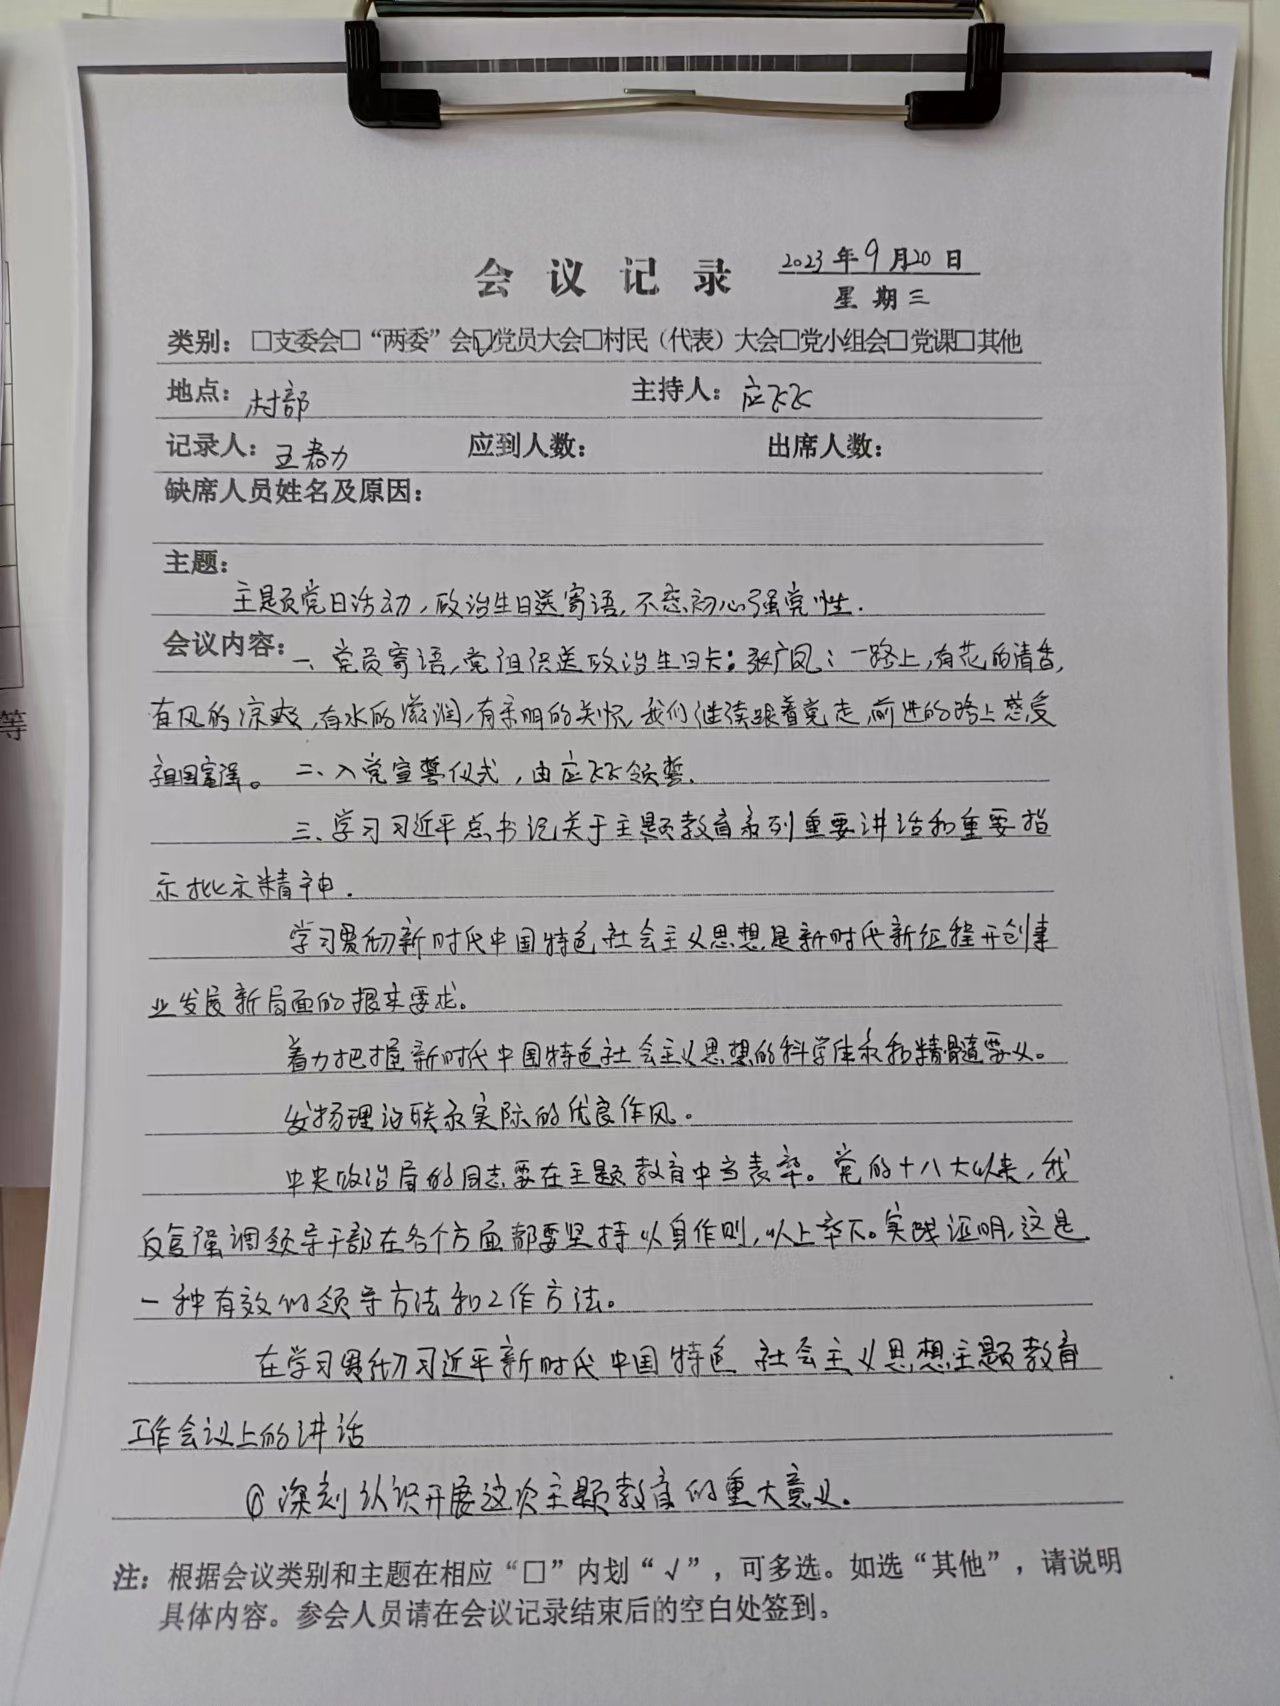 会议记录 2023年9月20日
星期三
类别：□支委会□“两委”会☑党员大会□村民（代表）大会□党小组会□党课□其他
地点：村部 主持人：应飞飞
记录人：王春力 应到人数： 出席人数：
缺席人员姓名及原因：
主题：
主题党日活动，政治生日送寄语，不忘初心强党性．
会议内容：一、党员寄语，党组织送政治生日卡：张广凤：一路上，有花的清香，
有风的凉爽，有水的滋润，有亲朋的关怀，我们继续跟着党走，前进的路上感受
祖国富强。 二、入党宣誓仪式，由应飞飞领誓．
三、学习习近平总书记关于主题教育系列重要讲话和重要指
示批示精神．
学习贯彻新时代中国特色社会主义思想是新时代新征程开创事
业发展新局面的根本要求。
着力把握新时代中国特色社会主义思想的科学体系和精髓要义。
发扬理论联系实际的优良作风。
中央政治局的同志要在主题教育中当表率。党的十八大以来，我
反复强调领导干部在各个方面都要坚持以身作则，以上率下。实践证明，这是
一种有效的领导方法和工作方法。
在学习贯彻习近平新时代中国特色社会主义思想主题教育
工作会议上的讲话
①深刻认识开展这次主题教育的重大意义。
注：根据会议类别和主题在相应“□”内划“√”，可多选。如选“其他”，请说明
具体内容。参会人员请在会议记录结束后的空白处签到。
等